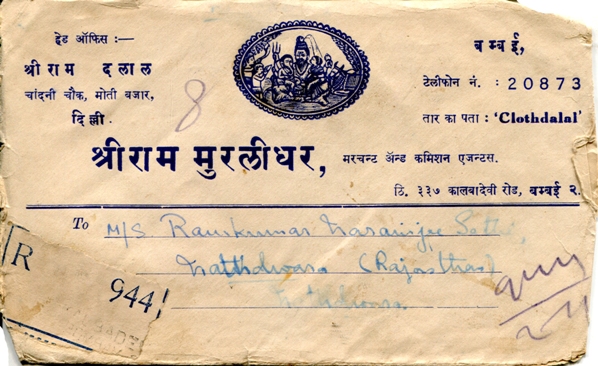 हेड ऑफिस :—
श्रीराम दलाल
चांदनी चौक, मोती बजार,
दिल्ली.
बम्बई,
टेलीफोन नं. : 20873
तार का पता : 'Clothdalal'
8
श्रीराम मुरलीधर, मरचन्ट ॲन्ड कमिशन एजन्टस.
ठि. ३३७ कालबादेवी रोड, बम्बई २.
To M/S Ramkumar Naranjee
Nathdwara (Rajasthan)
R
944!